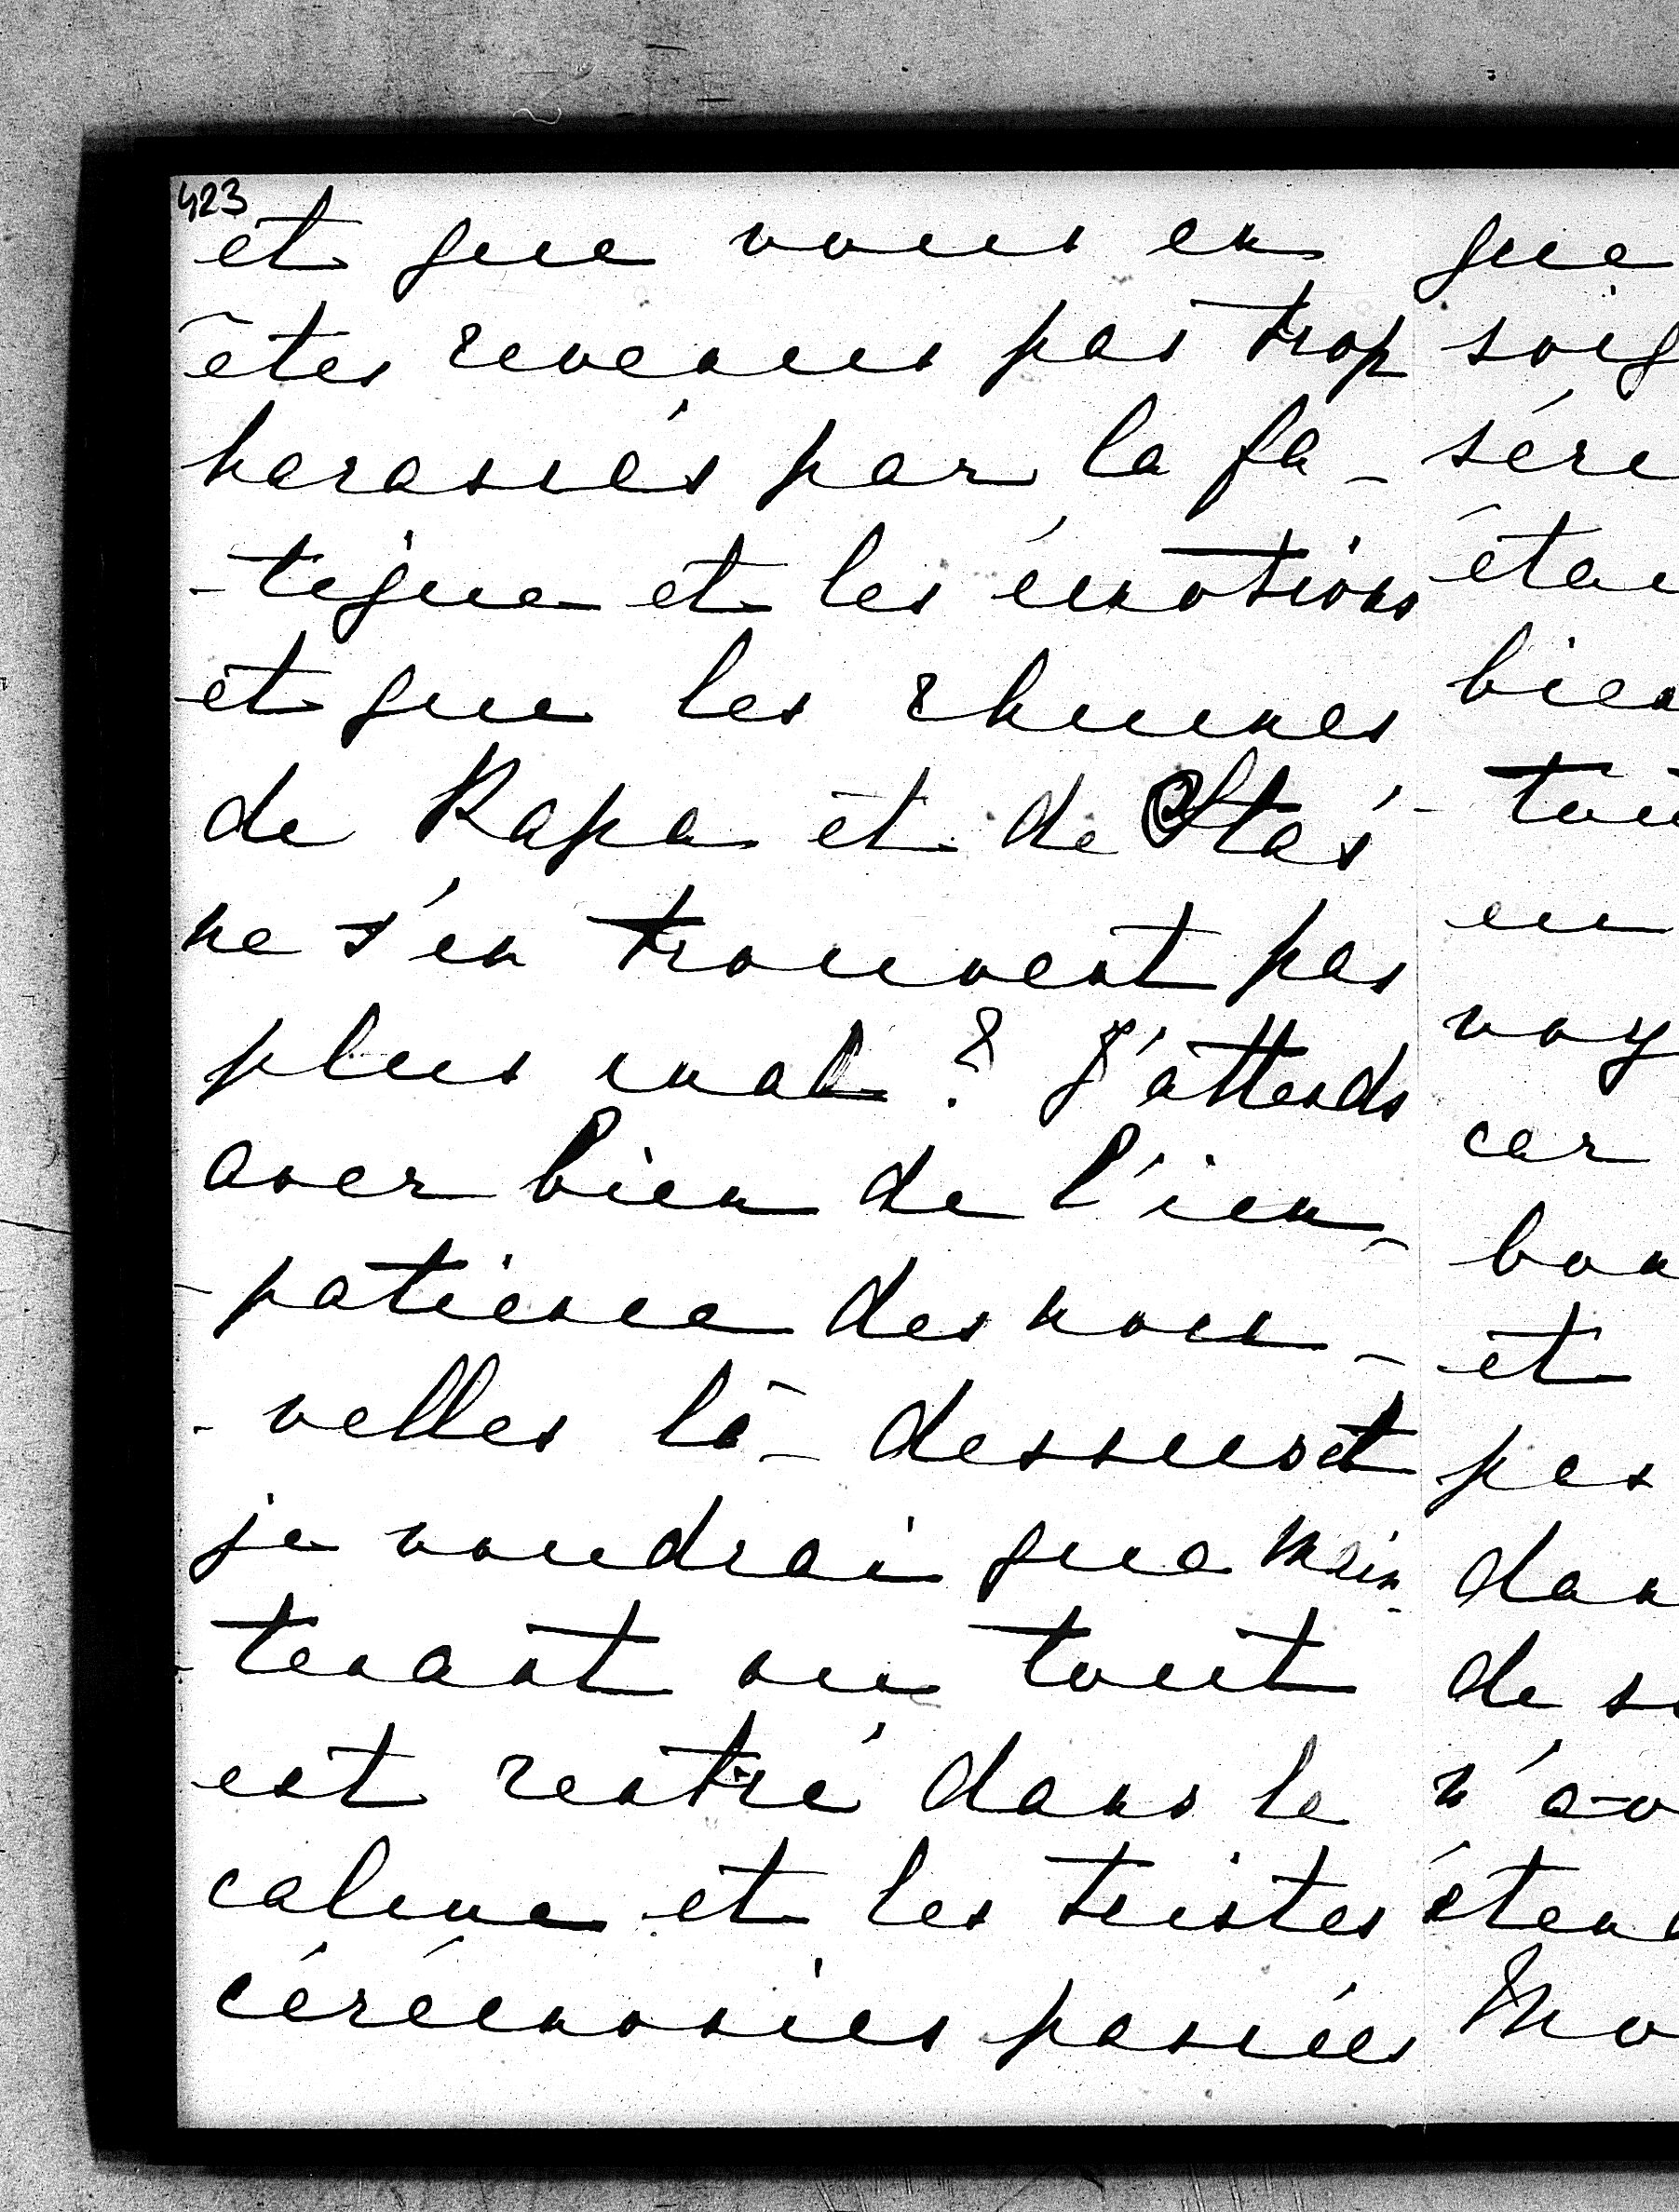 423
et que vous en
êtes revenus pas trop
harassés par la fa-
-tigue et les émotions
et que les rhumes
de Papa et de Stas
ne s'en trouvent pas
plus mal ? J'attends
avec bien de l'im-
-patience des nou-
-velles là-dessus et
je voudrai que main-
-tenant ou tout
est rentré dans le
calme et les tristes
cérémonies passées
que
soig
sére
étai
bien
tou
en
voy
car
bon
et
pas
dan
de so
n'av
éten
Mo